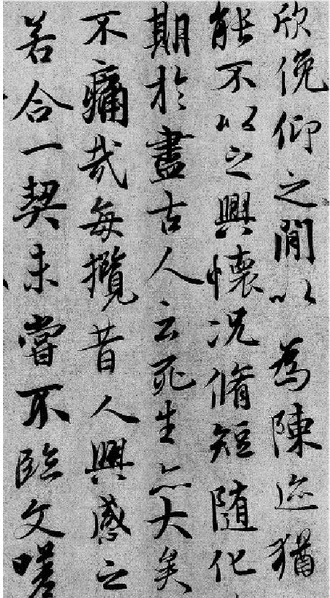 欣俛仰之閒以爲陳迹猶
能不以之興懷况脩短隨化
期於盡古人云死生亦大矣
不痛哉每攬昔人興感之
若合一契未嘗不臨文嗟